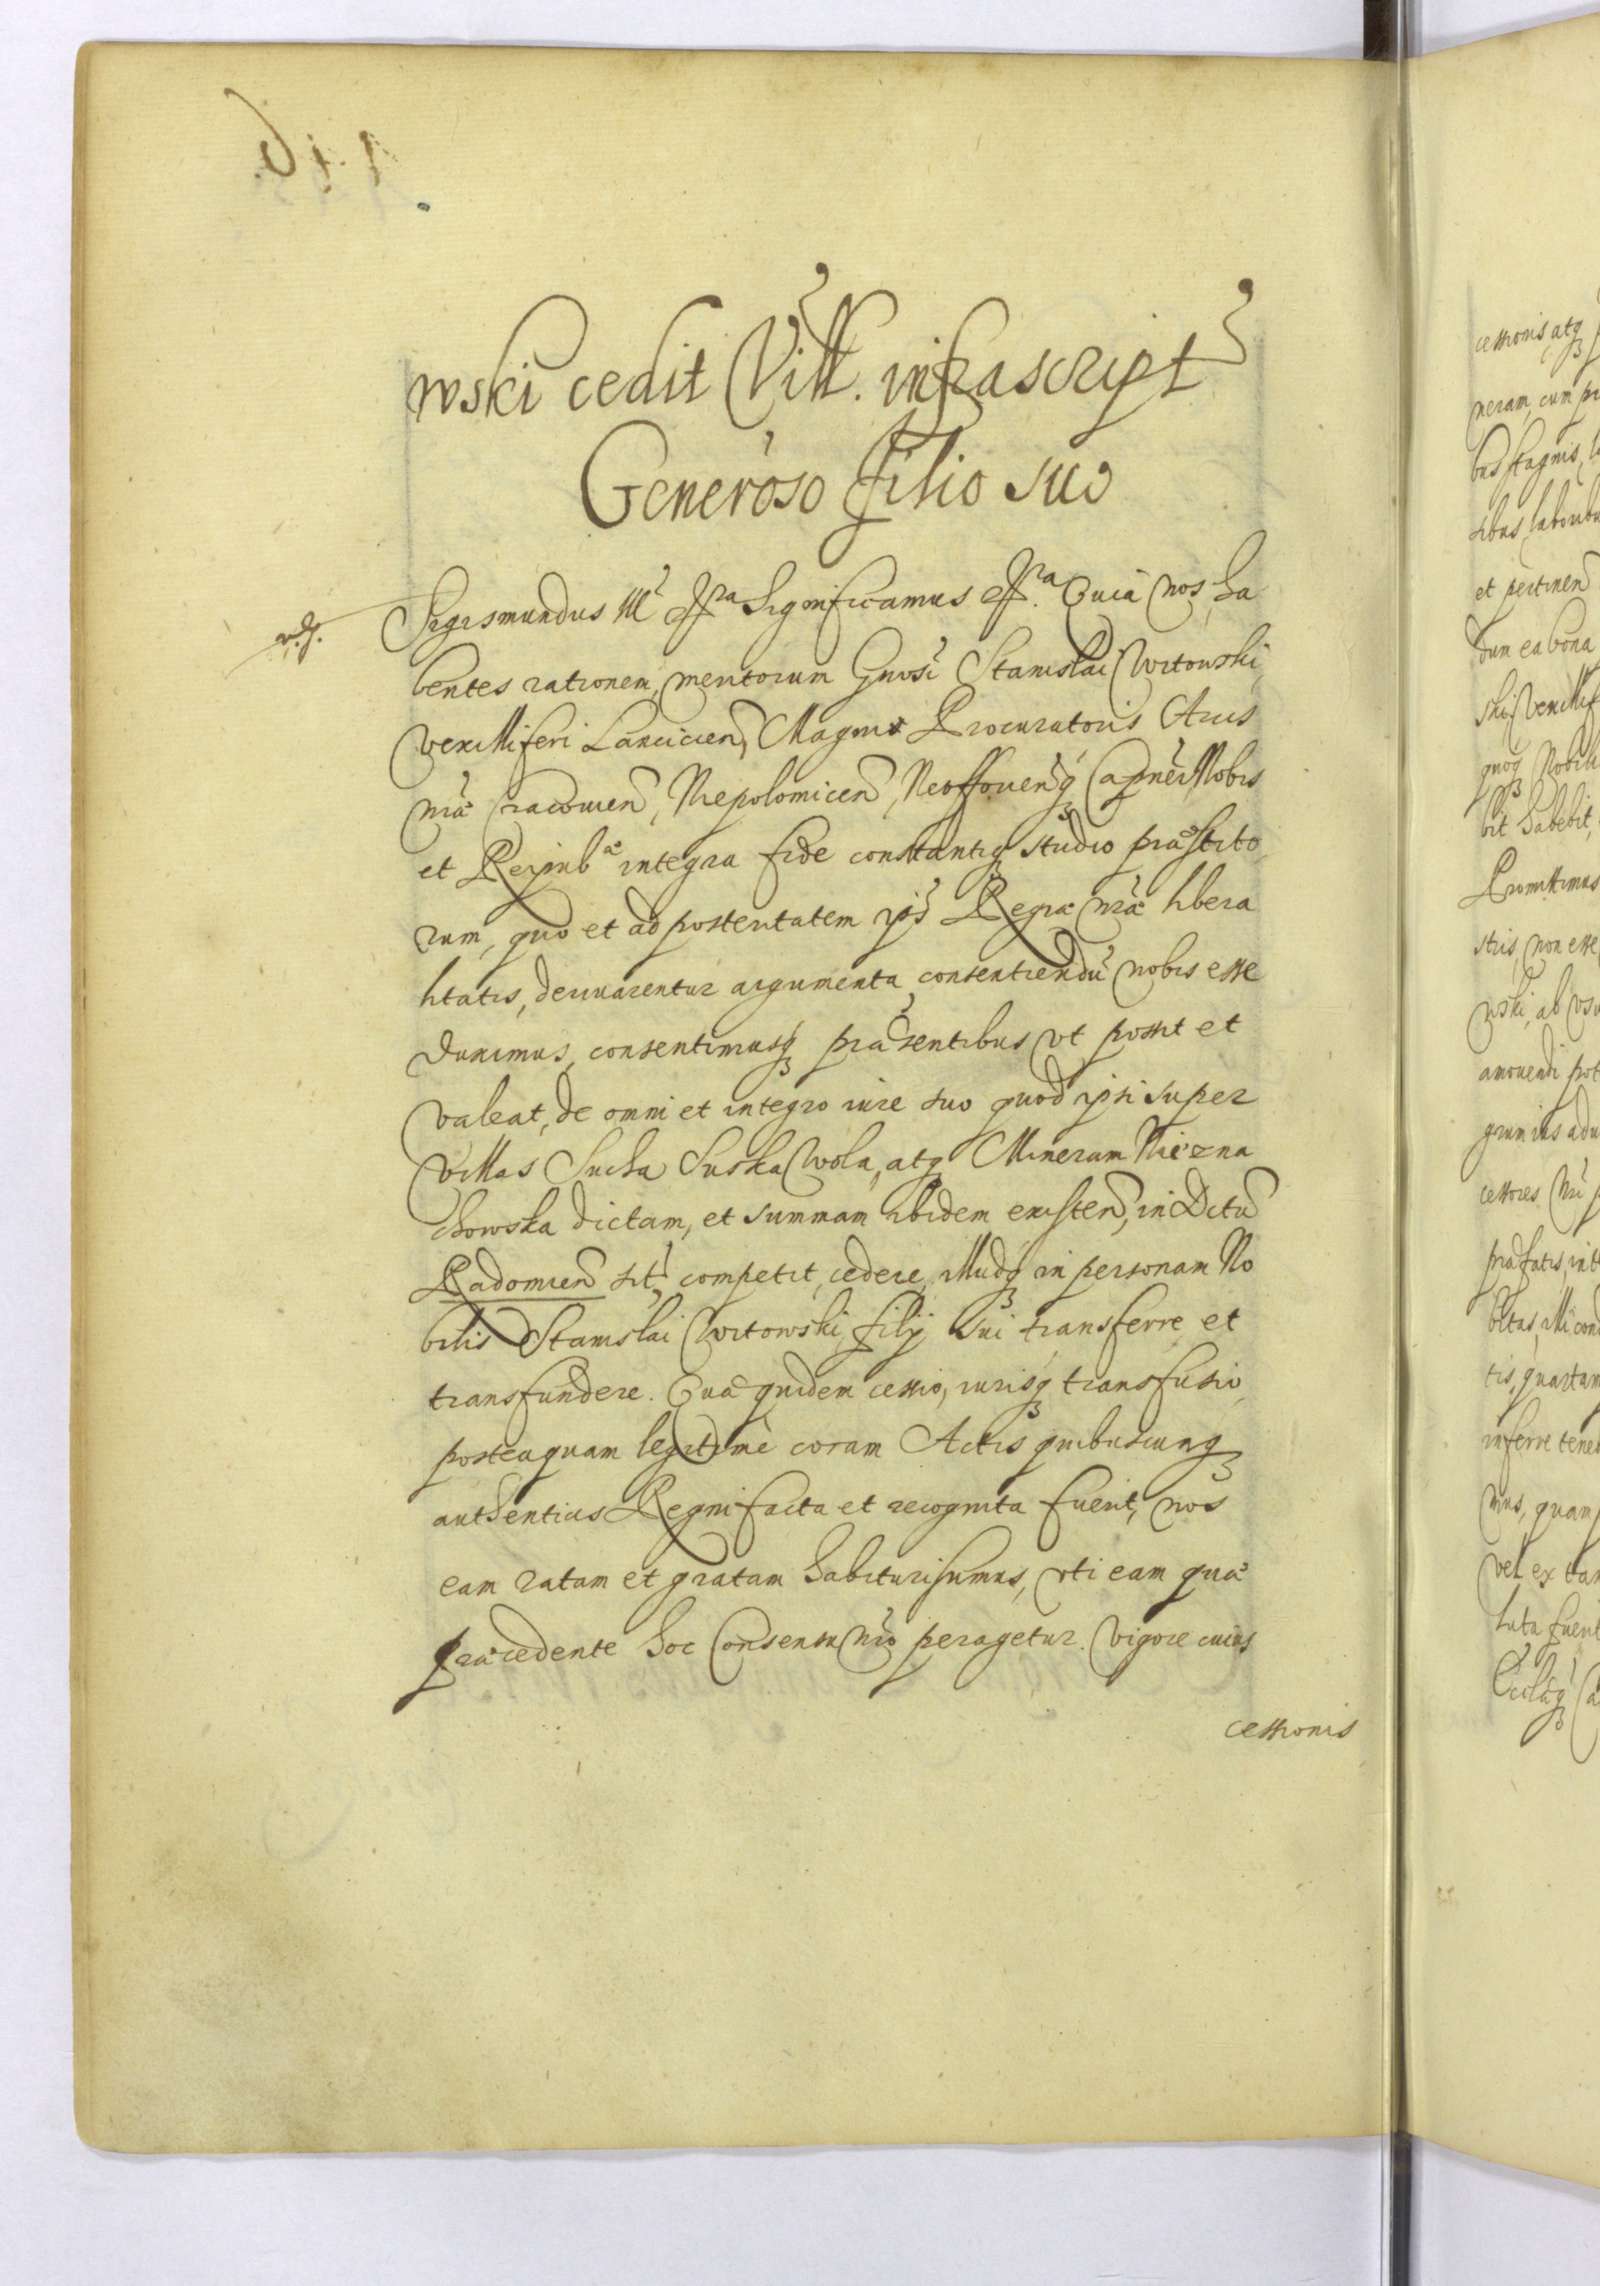 wski cedit Vill. infrascript
Generoso filio suo
Sigismundus III Significamus Quia nos ha
bentes rationem, meritorum Gnosi Stanislai Witowski
vexilliferi Lancicien, Magni Procuratoris Arcis
nrae Cracouien, Niepolomicen, Capnei Nobis
et Reipub integra fide constantiq studio praestito
rum, quo et ad posteritatem ips Regiae nrae libera
litatis, deriuarentur argumenta, consentiendu nobis esse
duximus, consentimusq praesentibus vt possit et
valeat, de omni et integro iure suo quod ipsi super
villas Sucha Suska Wola, atq Mineram Niezna
chowska dictam, et summam ibidem existen, in Dctu
Radomien sit, competit, cedere, illudq in personam No
bilis Stanislai Witowski filij sui transferre et
transfundere. Quae quidem cessio, iurisq transfusio
posteaquam legitimè coram Actis quibuscunq
authenticis Regni facta et recognita fuerit, nos
eam ratam et gratam habiturisumus, vti eam quae
praecedente hoc Consensu nro peragetur. Vigore cuius
cessionis
cessionis atq
neram, cum
bus stagnis,
et pertinen
dum ea bona
quoq Nobili
bit habebit,
Promittimus
stris, non esse
wski, ab vsu
amouendi
cessores
praefatis,
tis, quartam
inferre
mus, quam
vel ex
luta fuerit